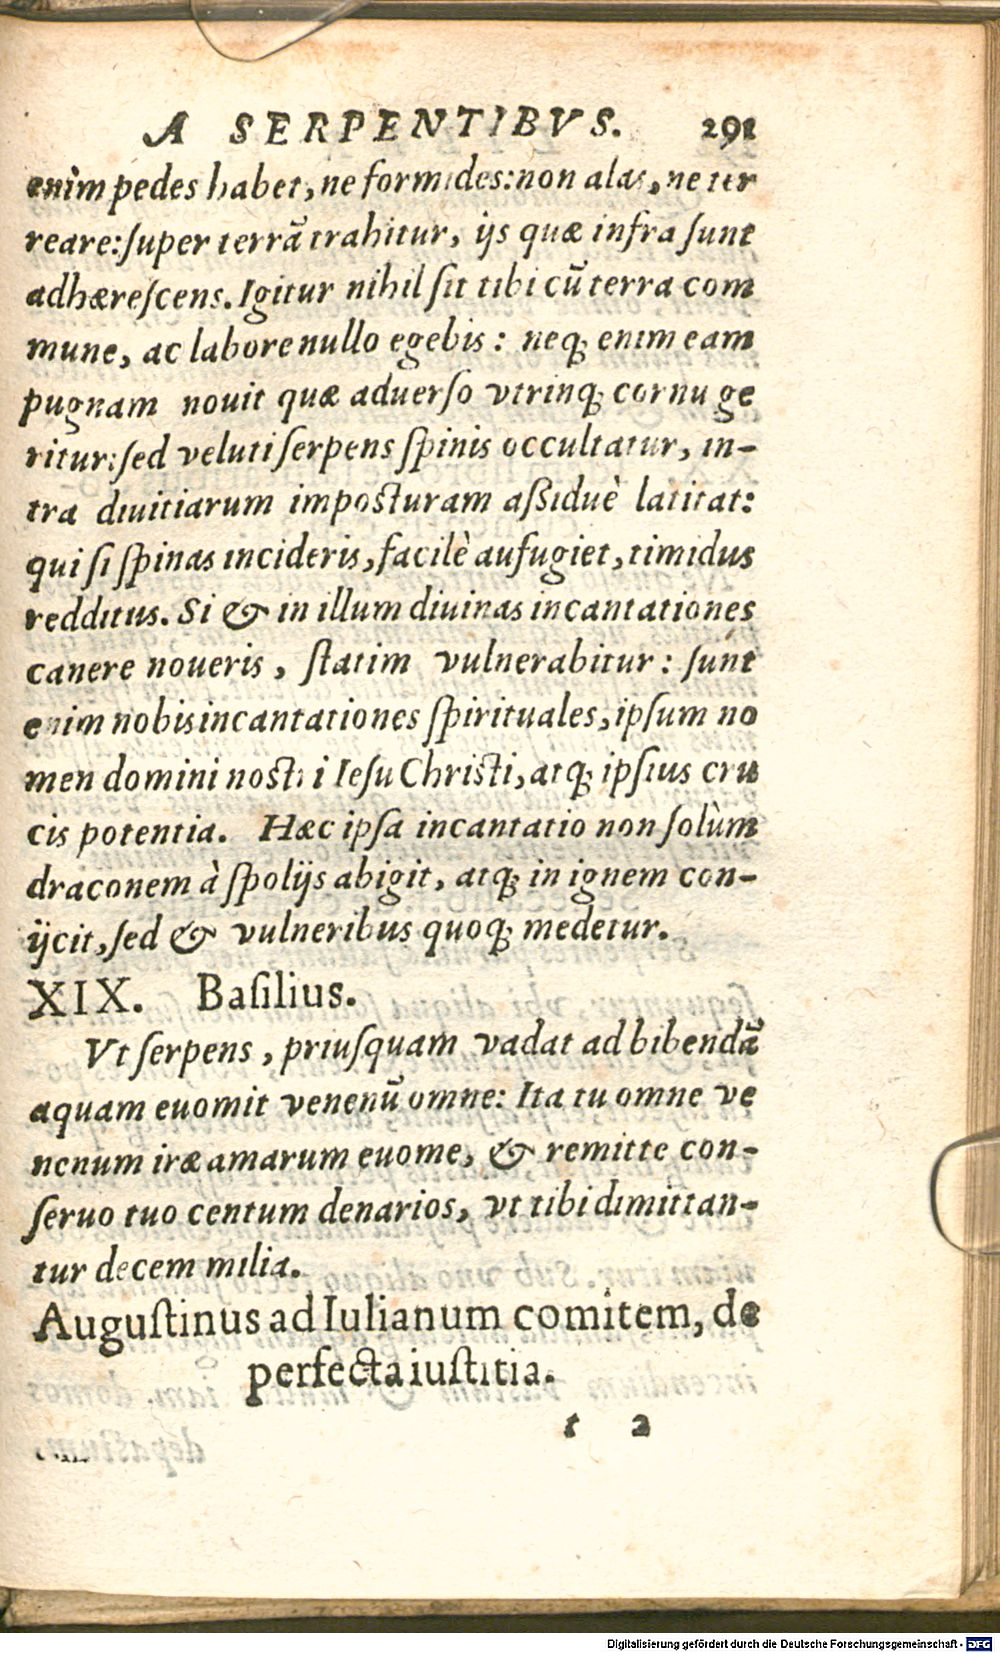 A SERPENTIBVS. 291
enim pedes habet, ne formides: non alas, ne ter
reare: ſuper terrã trahitur, ijs quæ infra ſunt
adhæreſcens. Igitur nihil ſit tibi cũ terra com
mune, ac labore nullo egebis: neq; enim eam
pugnam nouit quæ aduerſo vtrinq; cornu ge
ritur: ſed veluti ſerpens ſpinis occultatur, in-
tra diuitiarum impoſturam aßiduè latitat:
qui ſi ſpinas incideris, facilè aufugiet, timidus
redditus. Si & in illum diuinas incantationes
canere noueris, ſtatim vulnerabitur: ſunt
enim nobis incantationes ſpirituales, ipſum no
men domini noſtri Ieſu Chriſti, atq; ipſius cru
cis potentia. Hæc ipſa incantatio non ſolùm
draconem à ſpolijs abigit, atq; in ignem con-
ijcit, ſed & vulneribus quoq; medetur.
XIX. Baſilius.
Vt ſerpens, priuſquam vadat ad bibendã
aquam euomit venenũ omne: Ita tu omne ve
nenum iræ amarum euome, & remitte con-
ſeruo tuo centum denarios, vt tibi dimittan-
tur decem milia.
Auguſtinus ad Iulianum comitem, de
perfecta iuſtitia.
t 2
Digitalisierung gefördert durch die Deutsche Forschungsgemeinschaft - DFG